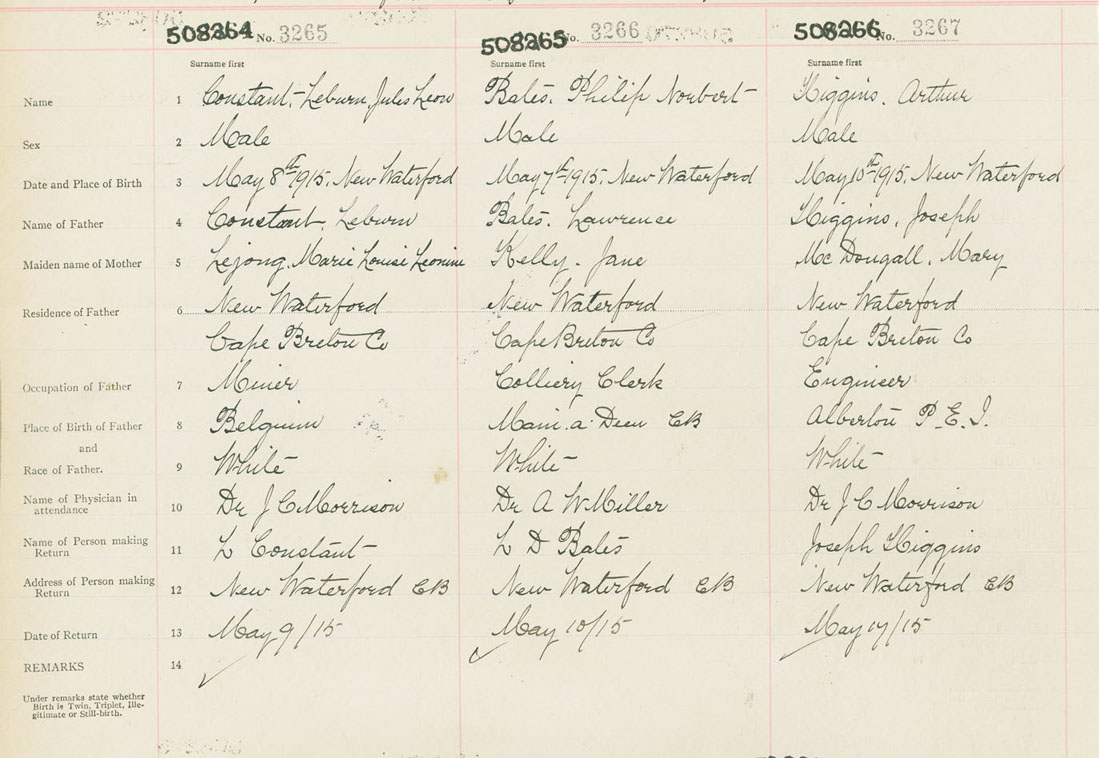 508264 No. 3265 508265 No. 3266 508266 No. 3267
Surname first Surname first Surname first
Name 1 Constant-Leburn, Jules Leon Bates. Philip Norbert Higgins. Arthur
Sex 2 Male Male Male
Date and Place of Birth 3 May 8th 1915. New Waterford May 7th 1915. New Waterford May 10th 1915. New Waterford
Name of Father 4 Constant, Leburn Bates. Lawrence Higgins, Joseph
Maiden name of Mother 5 Lejong. Marie Louise Leonine Kelly. Jane Mc Dougall. Mary
Residence of Father 6 New Waterford New Waterford New Waterford
Cape Breton Co Cape Breton Co Cape Breton Co
Occupation of Father 7 Miner Colliery Clerk Engineer
Place of Birth of Father 8 Belgium Main. a. Dieu CB Alberton P.E.I.
and
Race of Father. 9 White White White
Name of Physician in
attendance 10 Dr J C Morrison Dr A W Miller Dr J C Morrison
Name of Person making
Return 11 L Constant L D Bates Joseph Higgins
Address of Person making
Return 12 New Waterford CB New Waterford CB New Waterford CB
Date of Return 13 May 9/15 May 10/15 May 17/15
REMARKS 14
Under remarks state whether
Birth is Twin, Triplet, Ille-
gitimate or Still-birth.